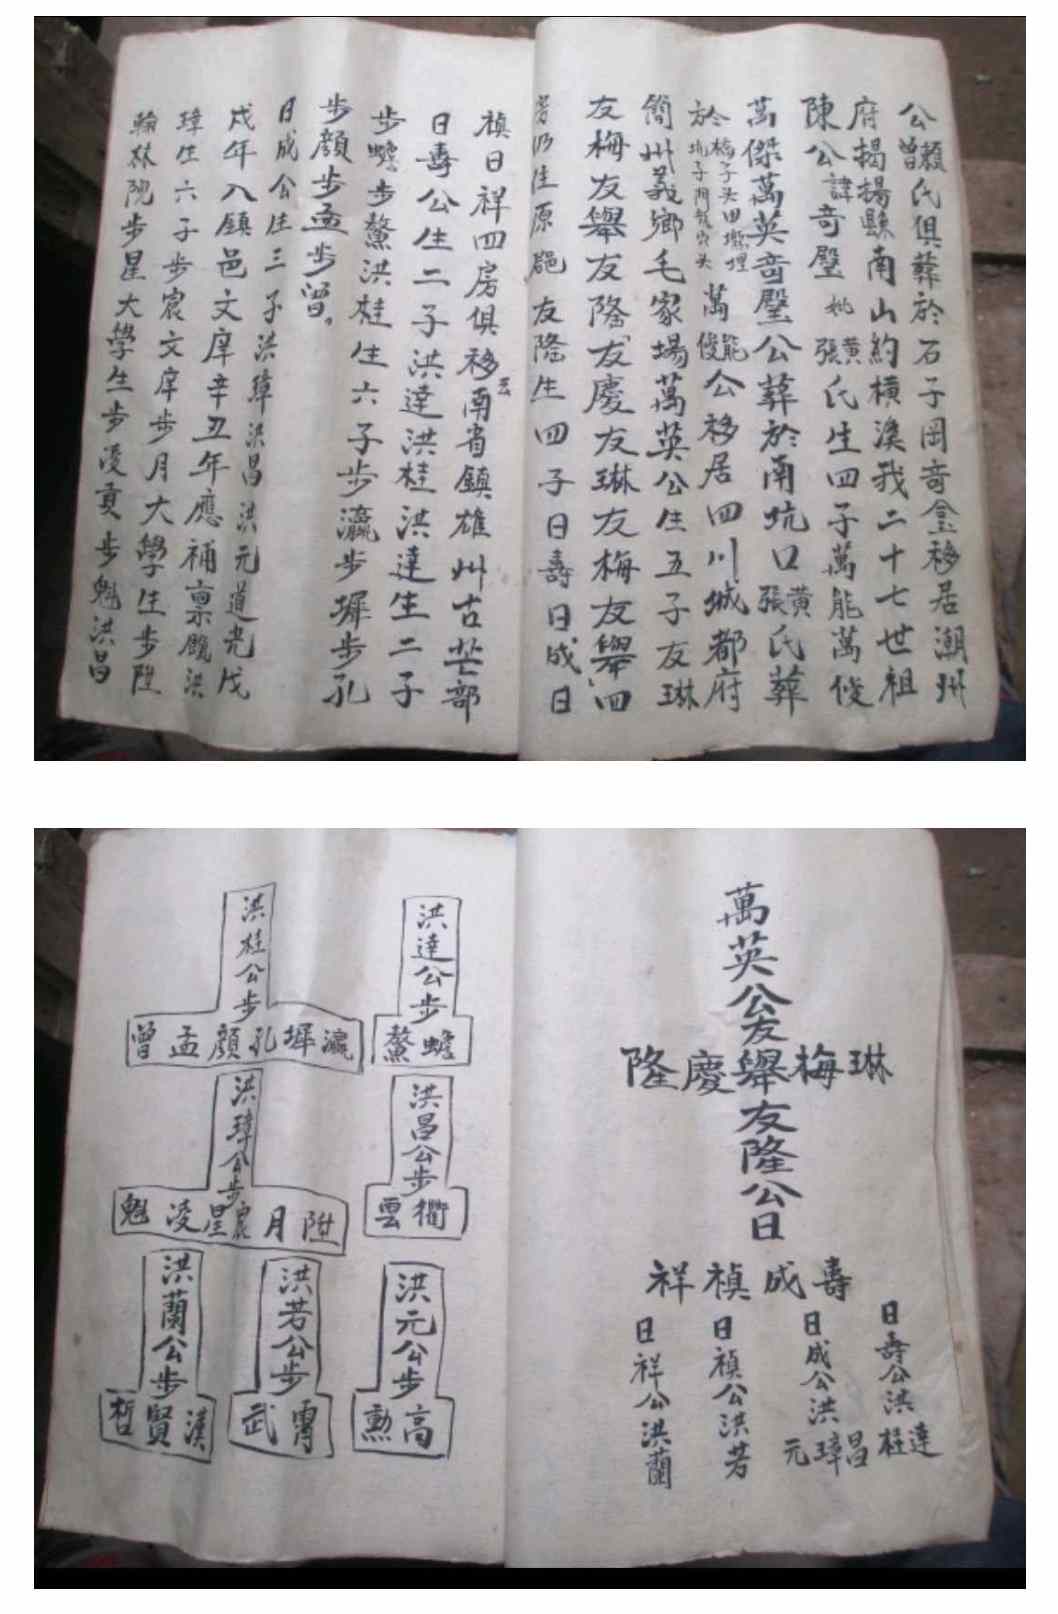 公賴曾氏俱葬於石子岡奇金移居潮州
府揭揚縣南山約橫溪我二十七世祖
陳公諱奇璧妣黃張氏生四子萬能萬俊
萬傑萬英奇璧公葬於南坑口黃張氏葬
於坑子門 梅子头田 埋 萬能俊公移居四川城都府
簡州義鄉毛家場萬英公生五子友琳
友梅友舉友隆友慶友琳友梅友舉四
房仍住原 友隆生四子日壽日成日
禎日祥四房俱移雲南省鎮雄州古芒部
日壽公生二子洪達洪桂洪達生二子
步蟾步鰲洪桂生六子步瀛步墀步孔
步顏步孟步曾
日成公生三子洪璋洪昌洪元道光戊
戌年入鎮邑文庠辛丑年應補禀 洪
璋生六子步宸文庠步月大學生步陞
翰林院步星大學生步凌貢步魁洪昌
萬英公友
琳梅舉慶隆
友隆公日
壽成禎祥
日壽公洪達桂
日成公洪昌璋元
日禎公洪芳
日祥公洪蘭
洪達公步
蟾鰲
洪桂公步
瀛墀孔顏孟曾
洪昌公步
衢雲
洪璋公步
陞月宸星凌魁
洪元公步
高勲
洪芳公步
霄武
洪蘭公步
漢賢哲